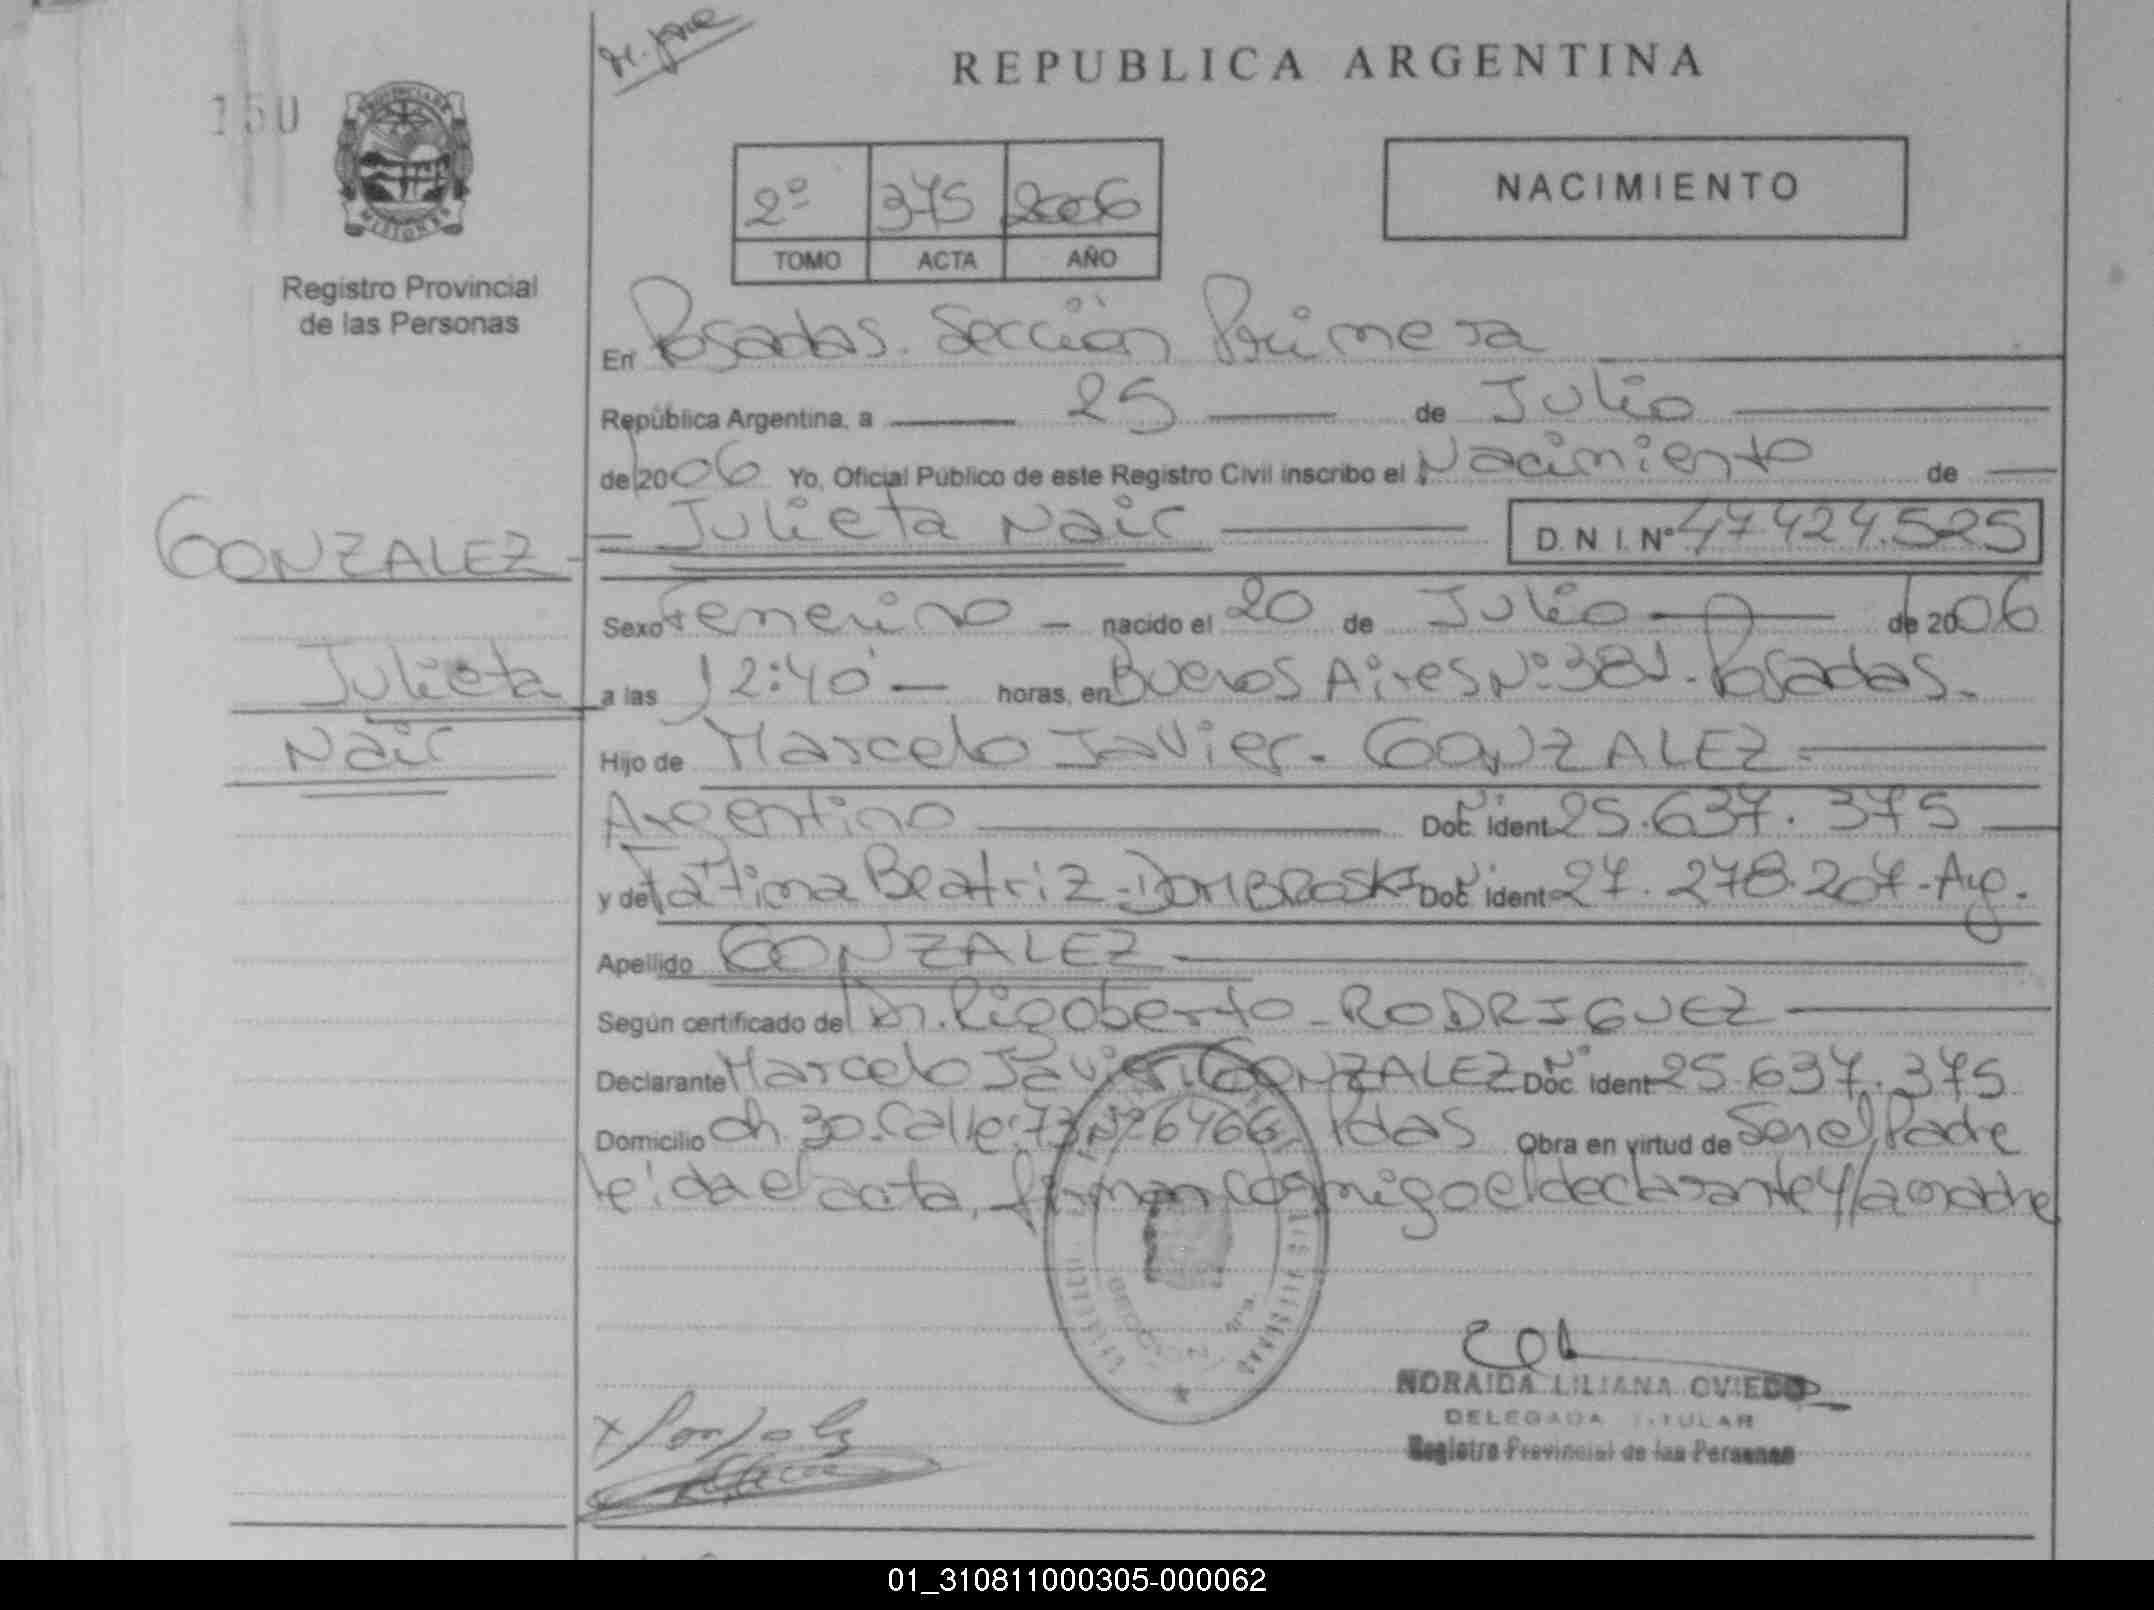 REPUBLICA ARGENTINA
150
PROVINCIA DE
MISIONES
Registro Provincial
de las Personas
2º 375 2006
TOMO ACTA AÑO
NACIMIENTO
En Posadas. Sección Primera
República Argentina, a 25 de Julio
de 2006 Yo, Oficial Público de este Registro Civil inscribo el Nacimiento de
GONZALEZ
Julieta Nair
Julieta Nair D.N.I. Nº 47424.525
Sexo Femenino - nacido el 20 de Julio de 2006
a las 12:40 - horas, en Buenos Aires Nº 381. Posadas.
Hijo de Marcelo Javier - GONZALEZ
Argentino Doc. Ident Nº 25.637.375
y de Fátima Beatriz - DOMBROSKI Doc. Ident Nº 27.278.207-Arg.
Apellido GONZALEZ
Según certificado de Dr. Rigoberto - RODRIGUEZ
Declarante Marcelo Javier GONZALEZ Doc. Ident Nº 25.637.375
Domicilio Ch. 30. Calle: 73 Nº 6466. Pdas Obra en virtud de Ser el Padre
leída el acta, firman conmigo el declarante y la madre
NORAIDA LILIANA OVIEDO
DELEGADA TITULAR
Registro Provincial de las Personas
01_310811000305-000062